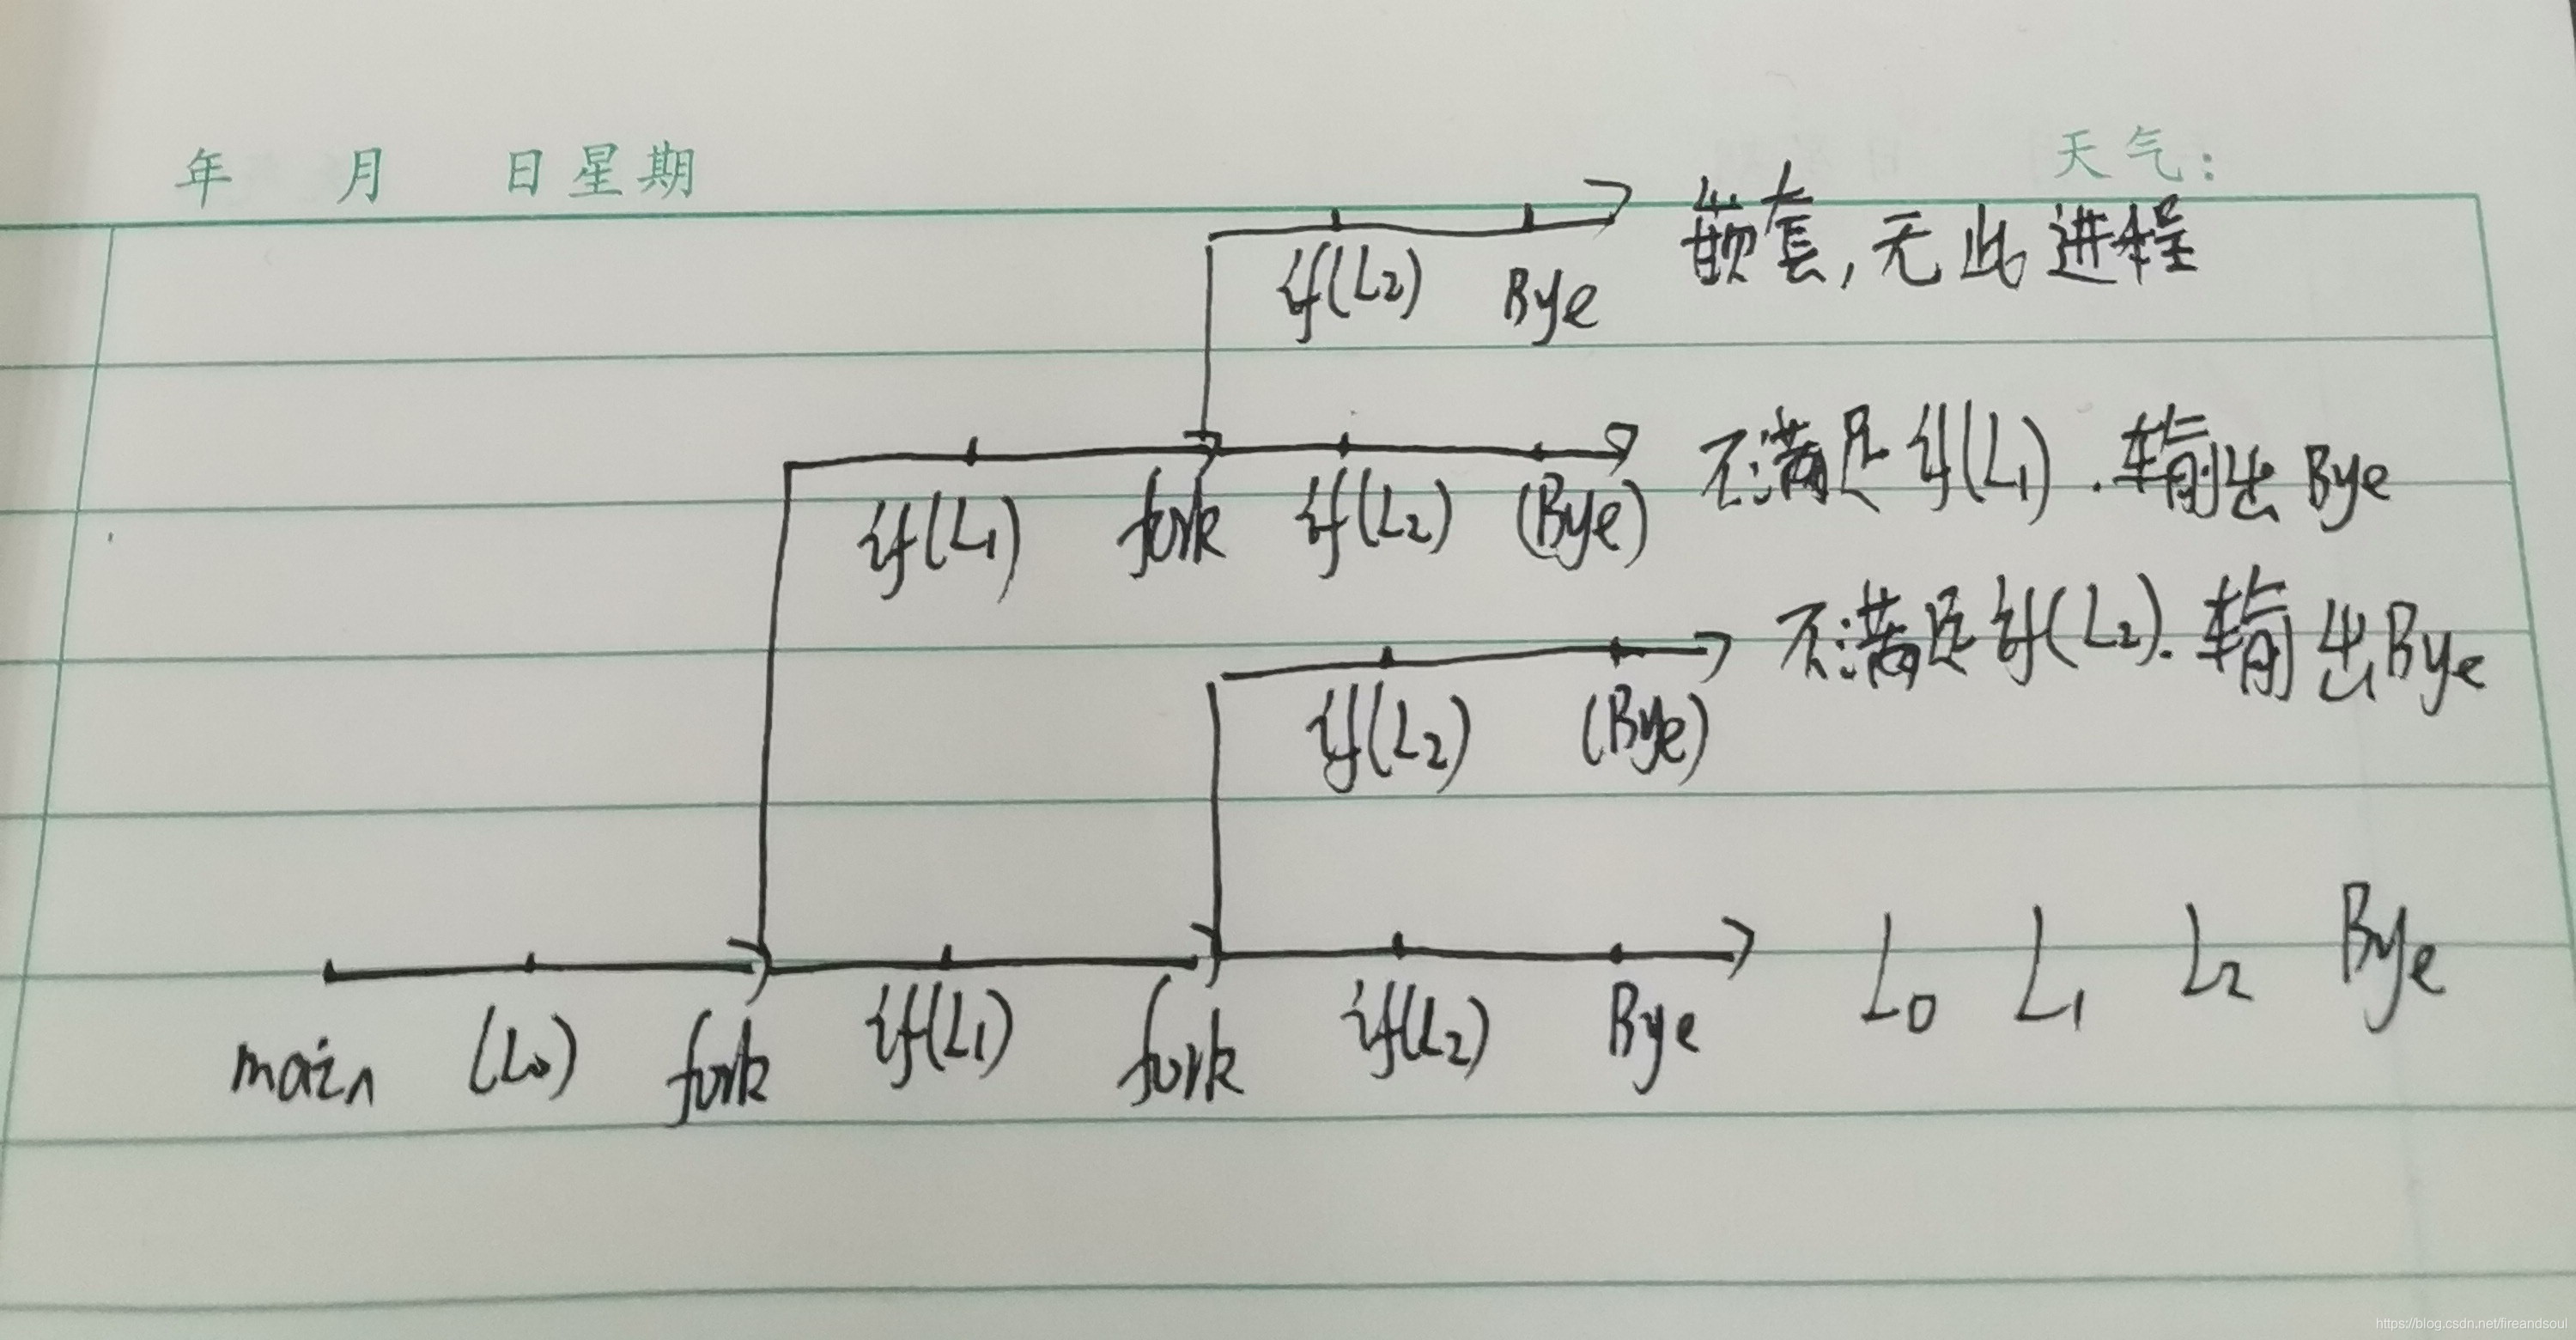 年 月 日星期 天气:
嵌套,无此进程
if(L2) Bye
不满足if(L1).输出Bye
if(L1) fork if(L2) (Bye)
不满足if(L2).输出Bye
if(L2) (Bye)
L0 L1 L2 Bye
main (L0) fork if(L1) fork if(L2) Bye
https://blog.csdn.net/fireandsoul